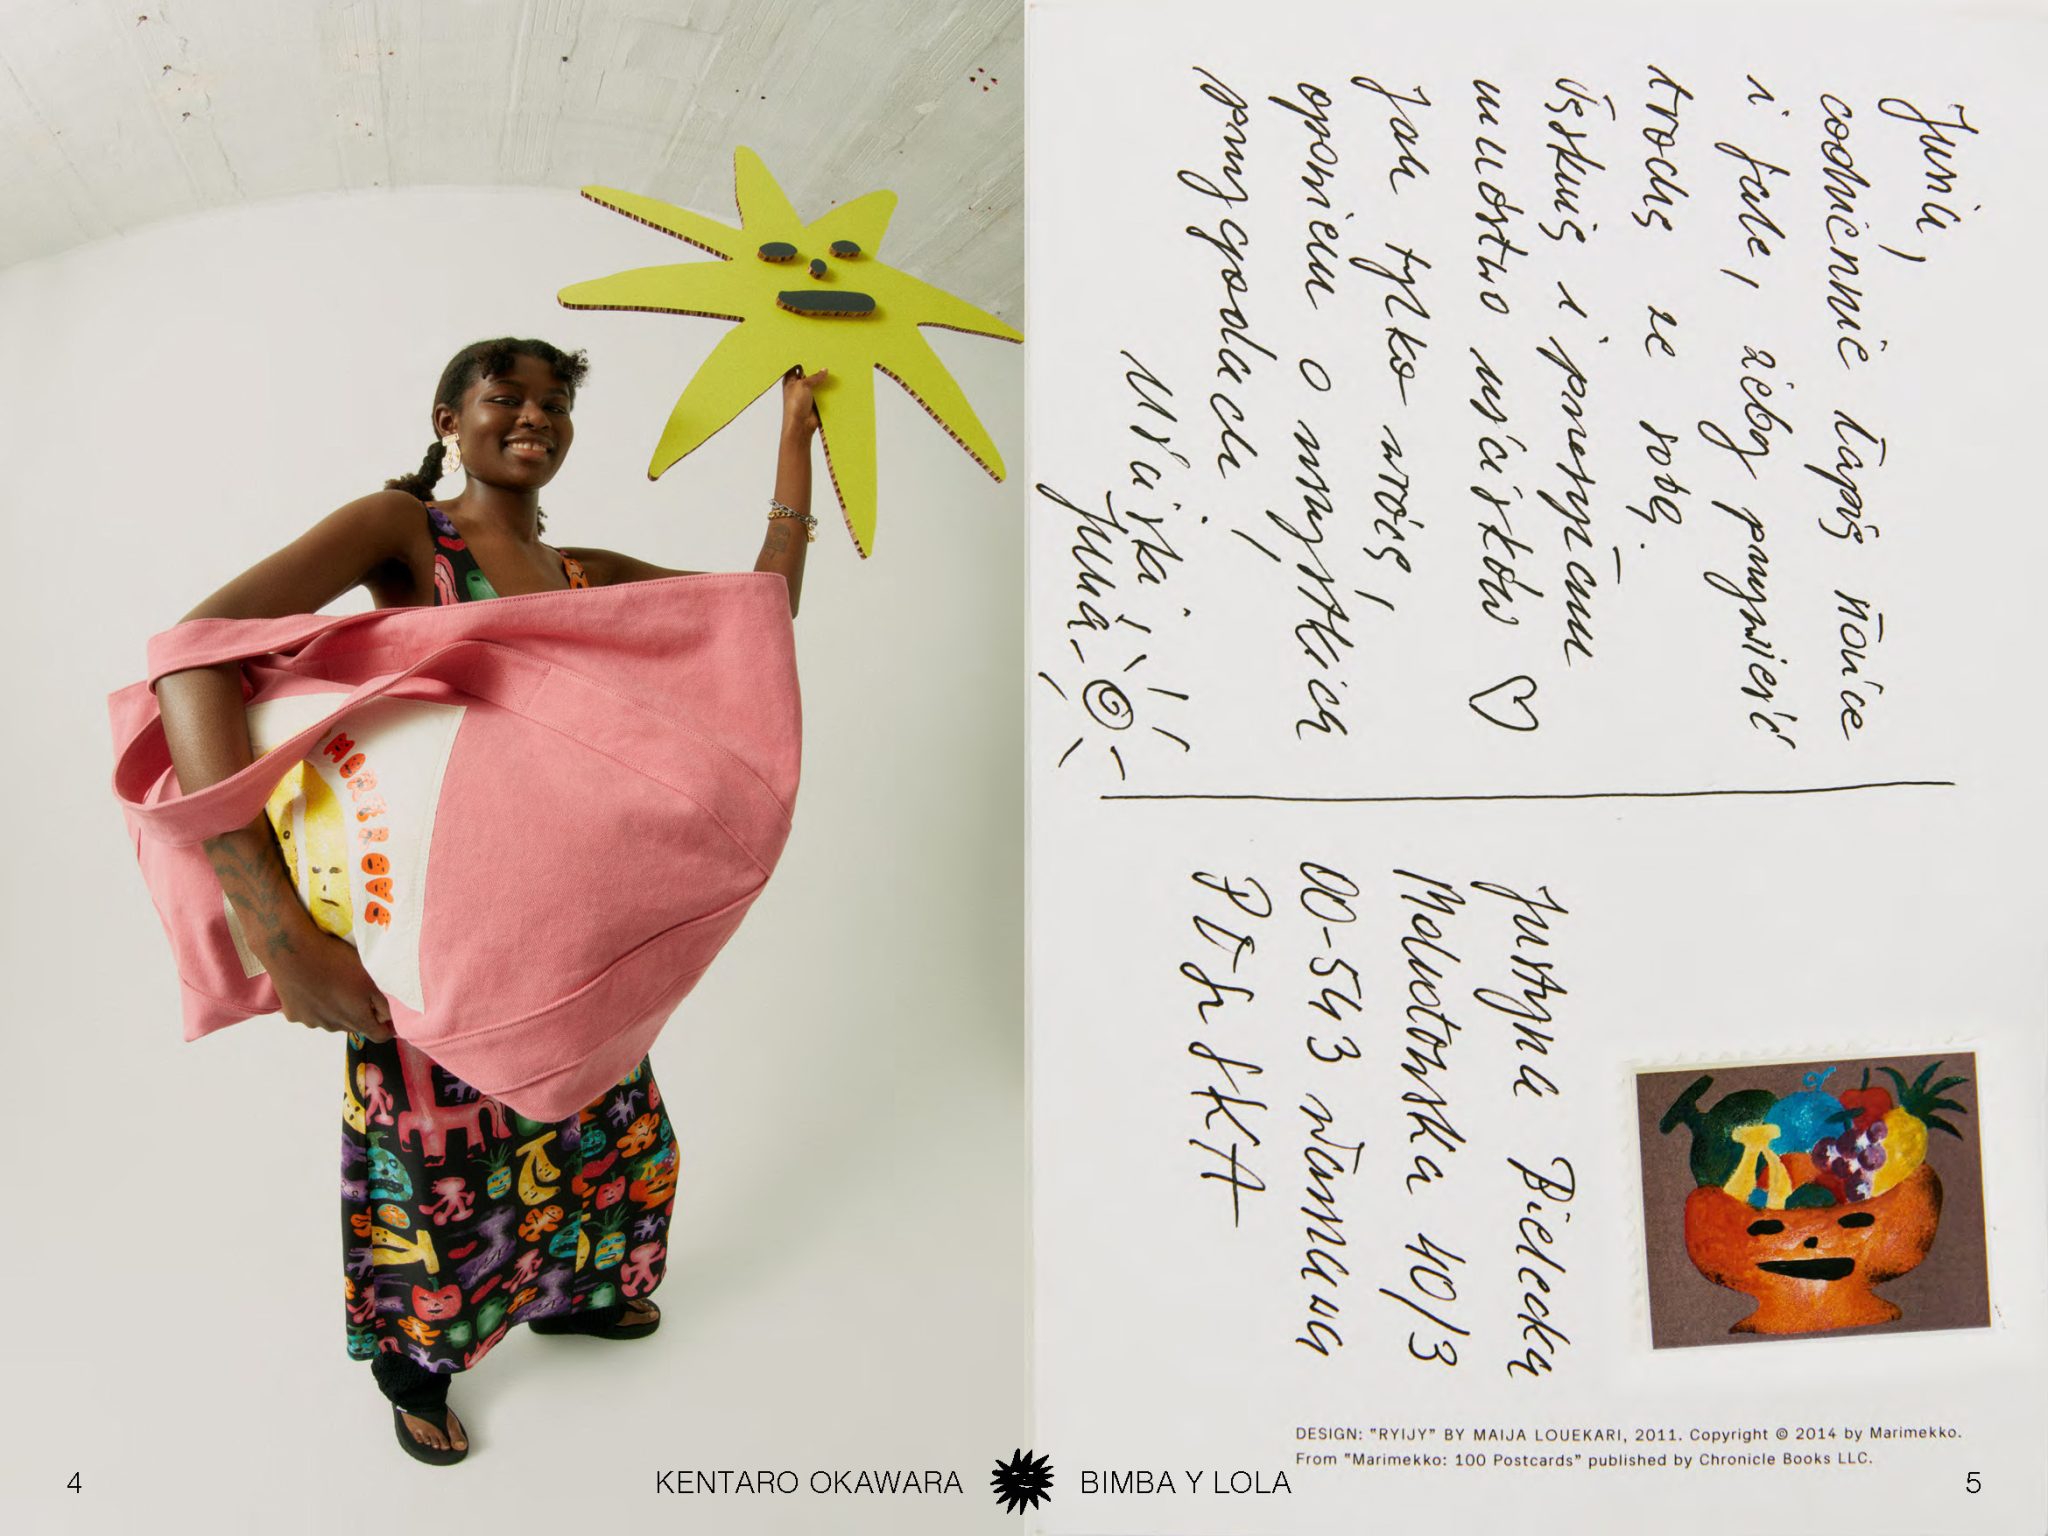 Jusiu,
codziennie łapię słońce
i fale, żeby przynieść
trochę ze sobą.
Tęsknię i przesyłam
mnóstwo uścisków ♡
Jak tylko wrócę,
opowiem o wszystkich
przygodach!
Uściski,
Julia
Justyna Bielecka
Mokotowska 40/3
00-543 Warszawa
POLSKA
DESIGN: "RYIJY" BY MAIJA LOUEKARI, 2011. Copyright © 2014 by Marimekko.
From "Marimekko: 100 Postcards" published by Chronicle Books LLC.
4
KENTARO OKAWARA
BIMBA Y LOLA
5